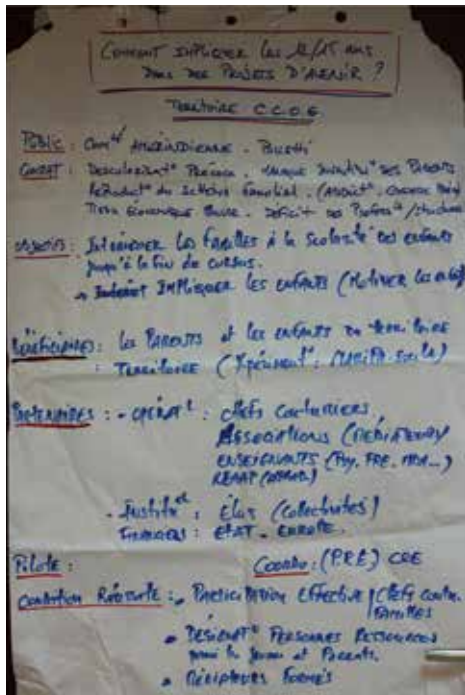 COMMENT IMPLIQUER les 12/15 ans
DANS DES PROJETS D'AVENIR ?
TERRITOIRE C C O G
PUBLIC : Comté AMERINDIENNE -
CONSTAT : Descolarisat° Précoce. des PARENTS
Reproduct° du Schéma Familial. (Addict°.
Tissu économique . Déficit des Profess°/structures
OBJECTIFS : Intéresser les familles à la Scolarité des enfants
jusqu'à la fin du cursus.
IMPLIQUER les enfants (Motiver les
Bénéficiaires : les PARENTS et les enfants du territoire
: TERRITOIRE (
PARTENAIRES : - OPÉRATls : CHEFS Coutumiers
ASSOCIATIONS (MÉDIATEURS)
ENSEIGNANTS (Psy, PRE,
REAAP
- Institut : Élus (Collectivités)
FINANCIERS : ÉTAT - EUROPE.
Pilote : Coordo : (PRE) CDE
Condition Réussite : - PARTICIPATION EFFECTIVE CHEFS Coutu.
FAMILLES
DÉSIGNAT° PERSONNES RESSOURCES
pour les jeunes et Parents.
FORMÉS